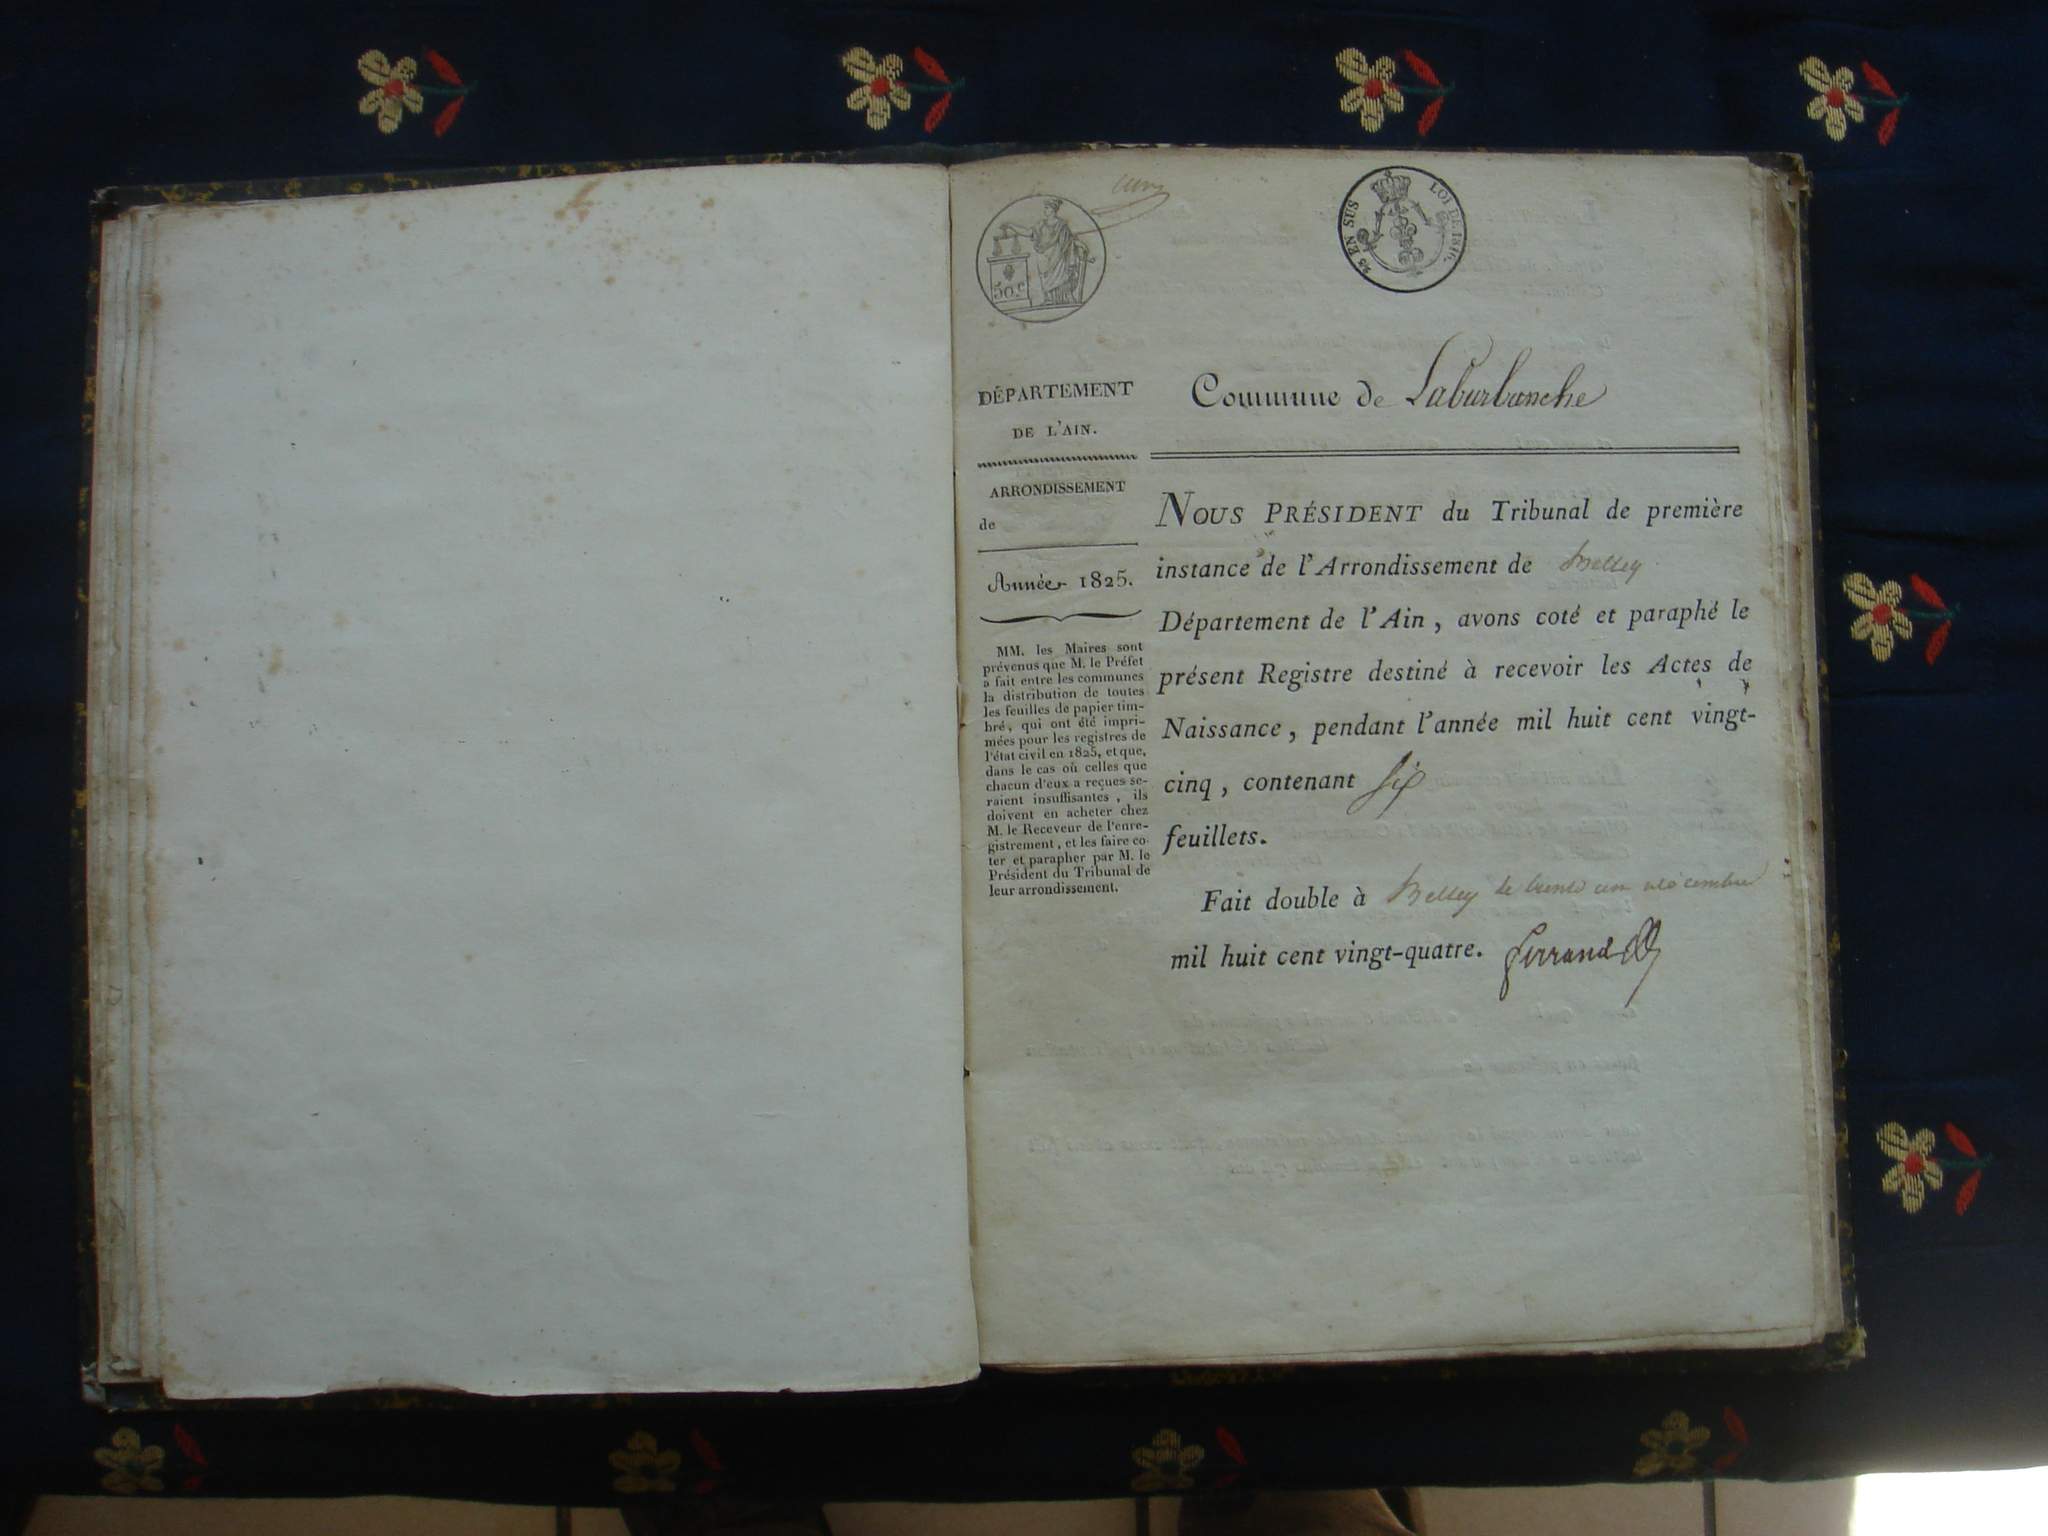 50.c
25 EN SUS
LOI DE 1816.
DÉPARTEMENT
DE L'AIN.
ARRONDISSEMENT
de
Année 1825.
MM. les Maires sont
prévenus que M. le Préfet
a fait entre les communes
la distribution de toutes
les feuilles de papier tim-
bré, qui ont été impri-
mées pour les registres de
l'état civil en 1825, et que,
dans le cas où celles que
chacun d'eux a reçues se-
raient insuffisantes, ils
doivent en acheter chez
M. le Receveur de l'enre-
gistrement, et les faire co-
ter et parapher par M. le
Président du Tribunal de
leur arrondissement.
Commune de Laburbanche
NOUS PRÉSIDENT du Tribunal de première
instance de l'Arrondissement de Belley
Département de l'Ain, avons coté et paraphé le
présent Registre destiné à recevoir les Actes de
Naissance, pendant l'année mil huit cent vingt-
cinq, contenant six
feuillets.
Fait double à Belley le trente un décembre
mil huit cent vingt-quatre. ferrand